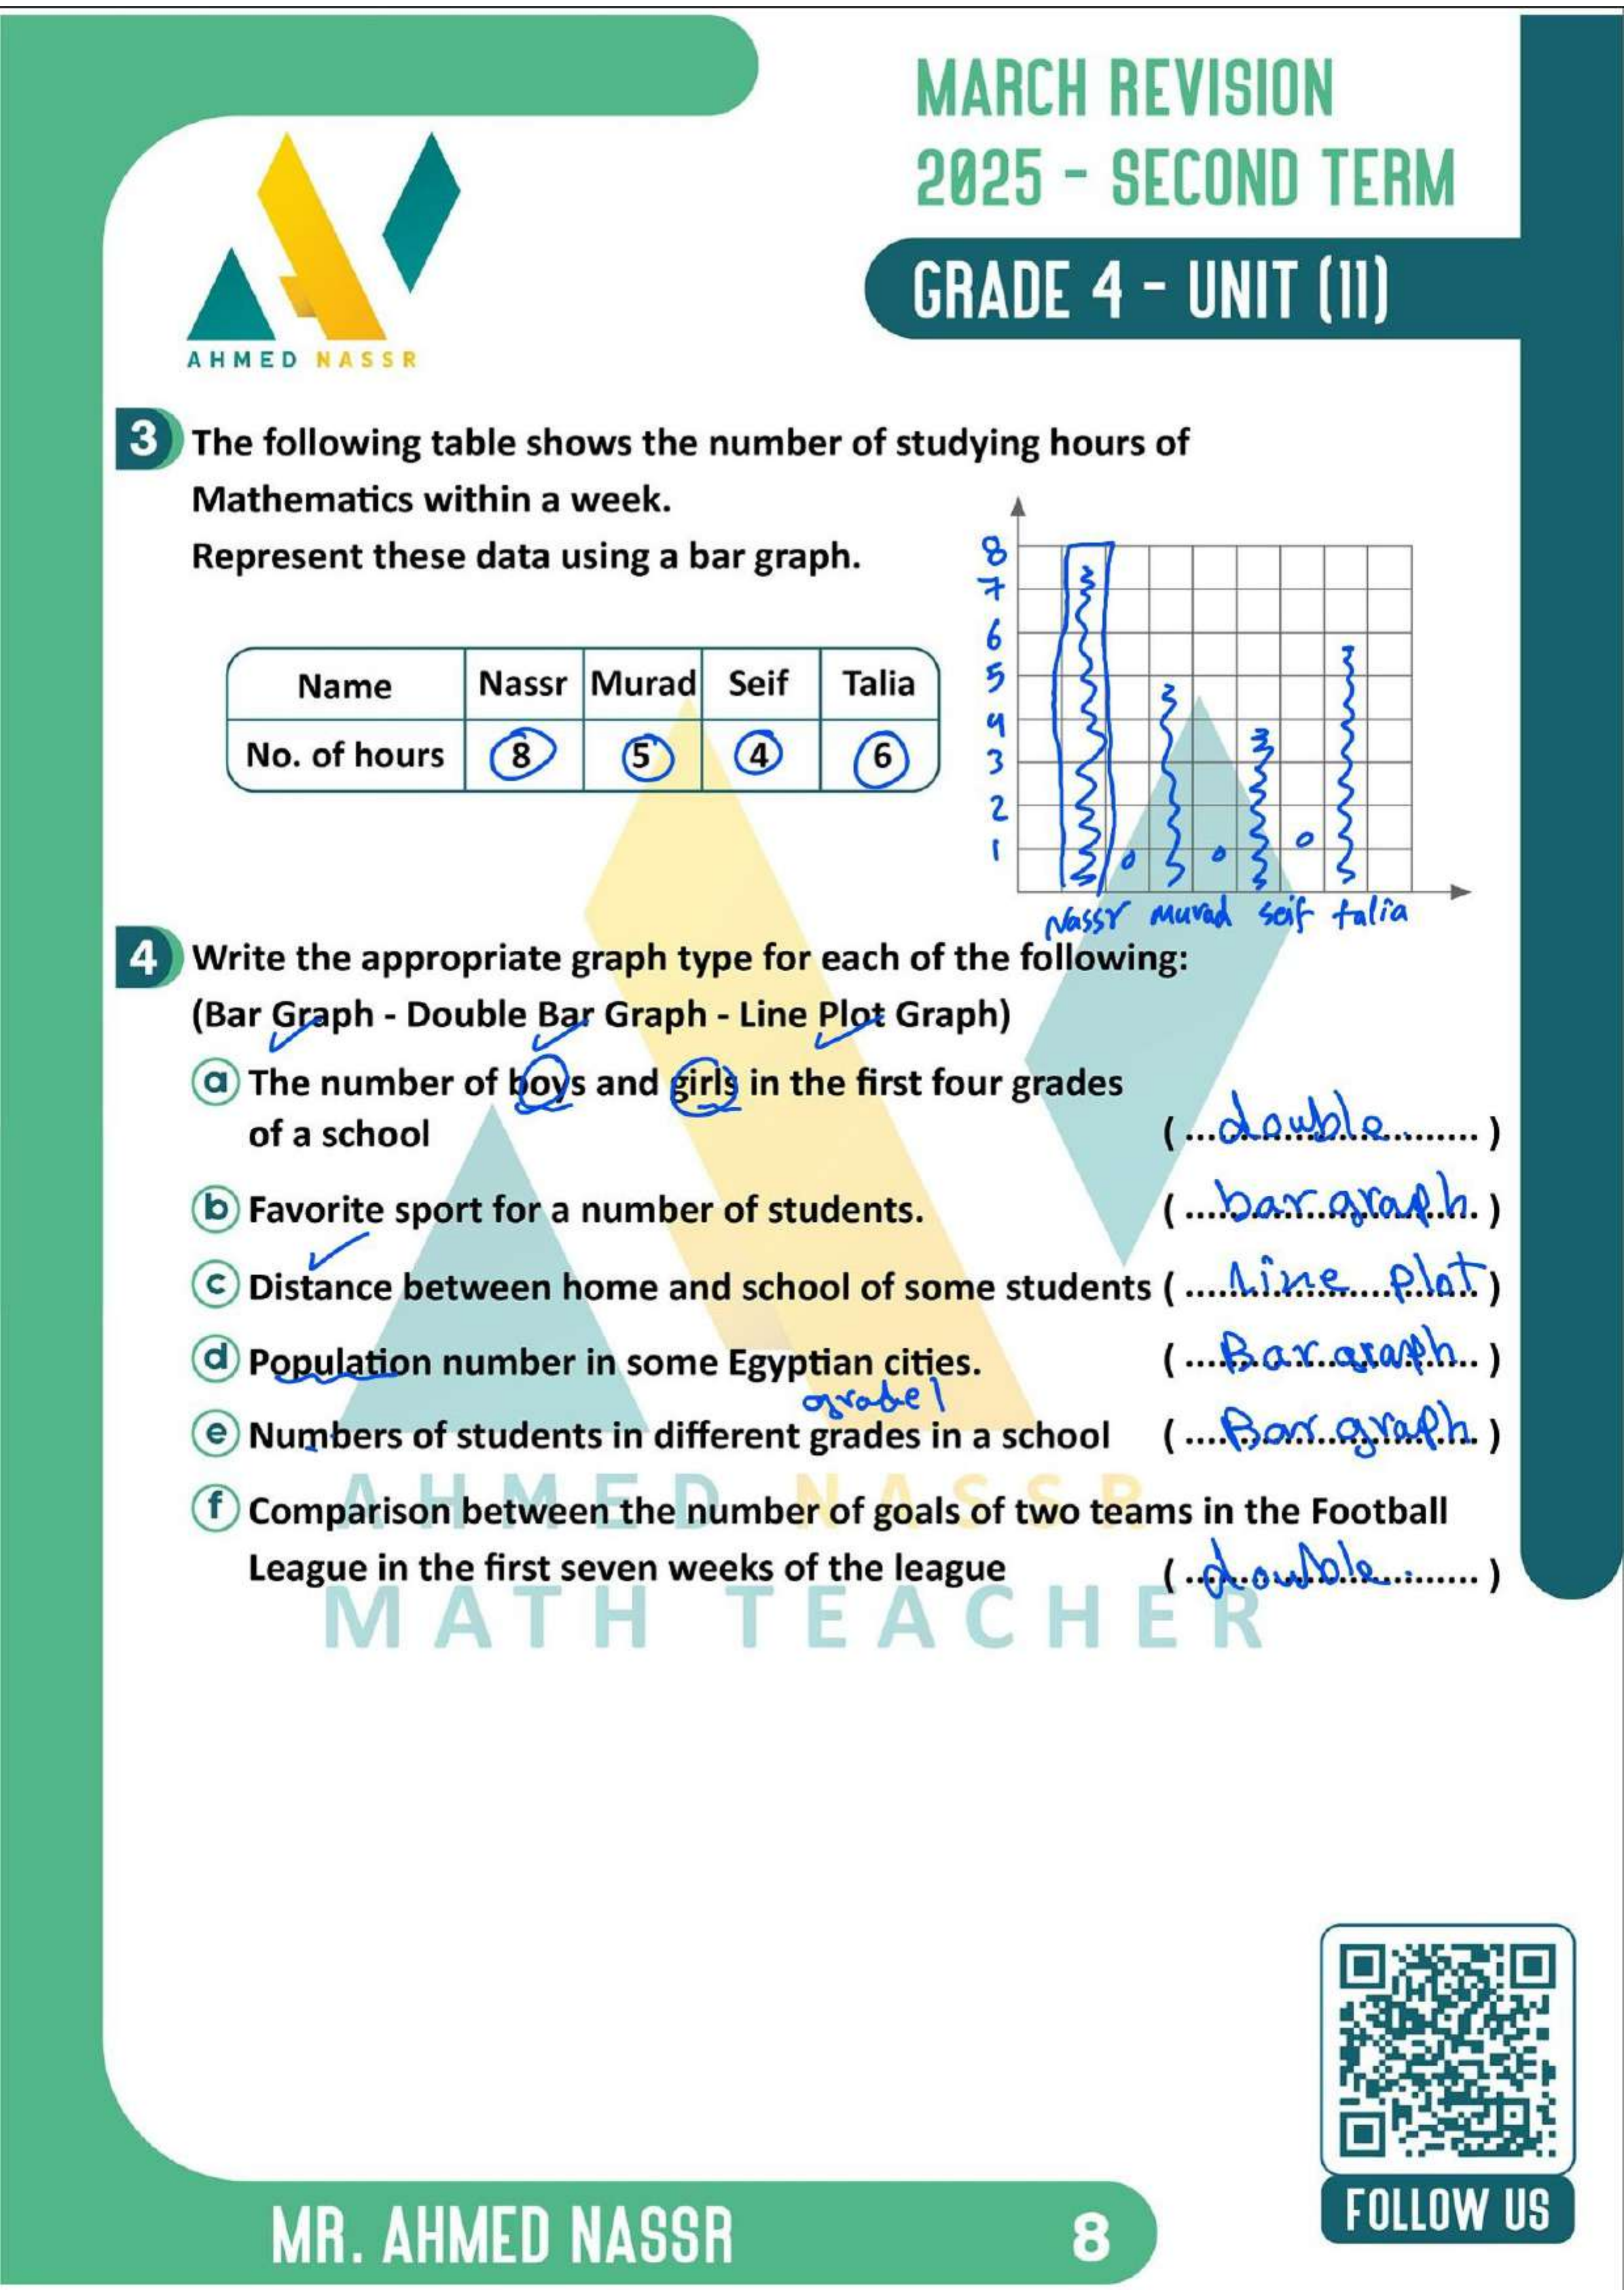 MARCH REVISION
2025 - SECOND TERM
GRADE 4 - UNIT (11)
AHMED NASSR
3 The following table shows the number of studying hours of
Mathematics within a week.
Represent these data using a bar graph.
Name Nassr Murad Seif Talia
No. of hours 8 5 4 6
8
7
6
5
4
3
2
1
Nassr Murad seif talia
4 Write the appropriate graph type for each of the following:
(Bar Graph - Double Bar Graph - Line Plot Graph)
a The number of boys and girls in the first four grades
of a school (...double...)
b Favorite sport for a number of students. (...bar graph...)
c Distance between home and school of some students (...Line plot...)
d Population number in some Egyptian cities. (...Bar graph...)
grade 1
e Numbers of students in different grades in a school (...Bar graph...)
f Comparison between the number of goals of two teams in the Football
League in the first seven weeks of the league (...double...)
AHMED NASSR
MATH TEACHER
MR. AHMED NASSR
8
FOLLOW US